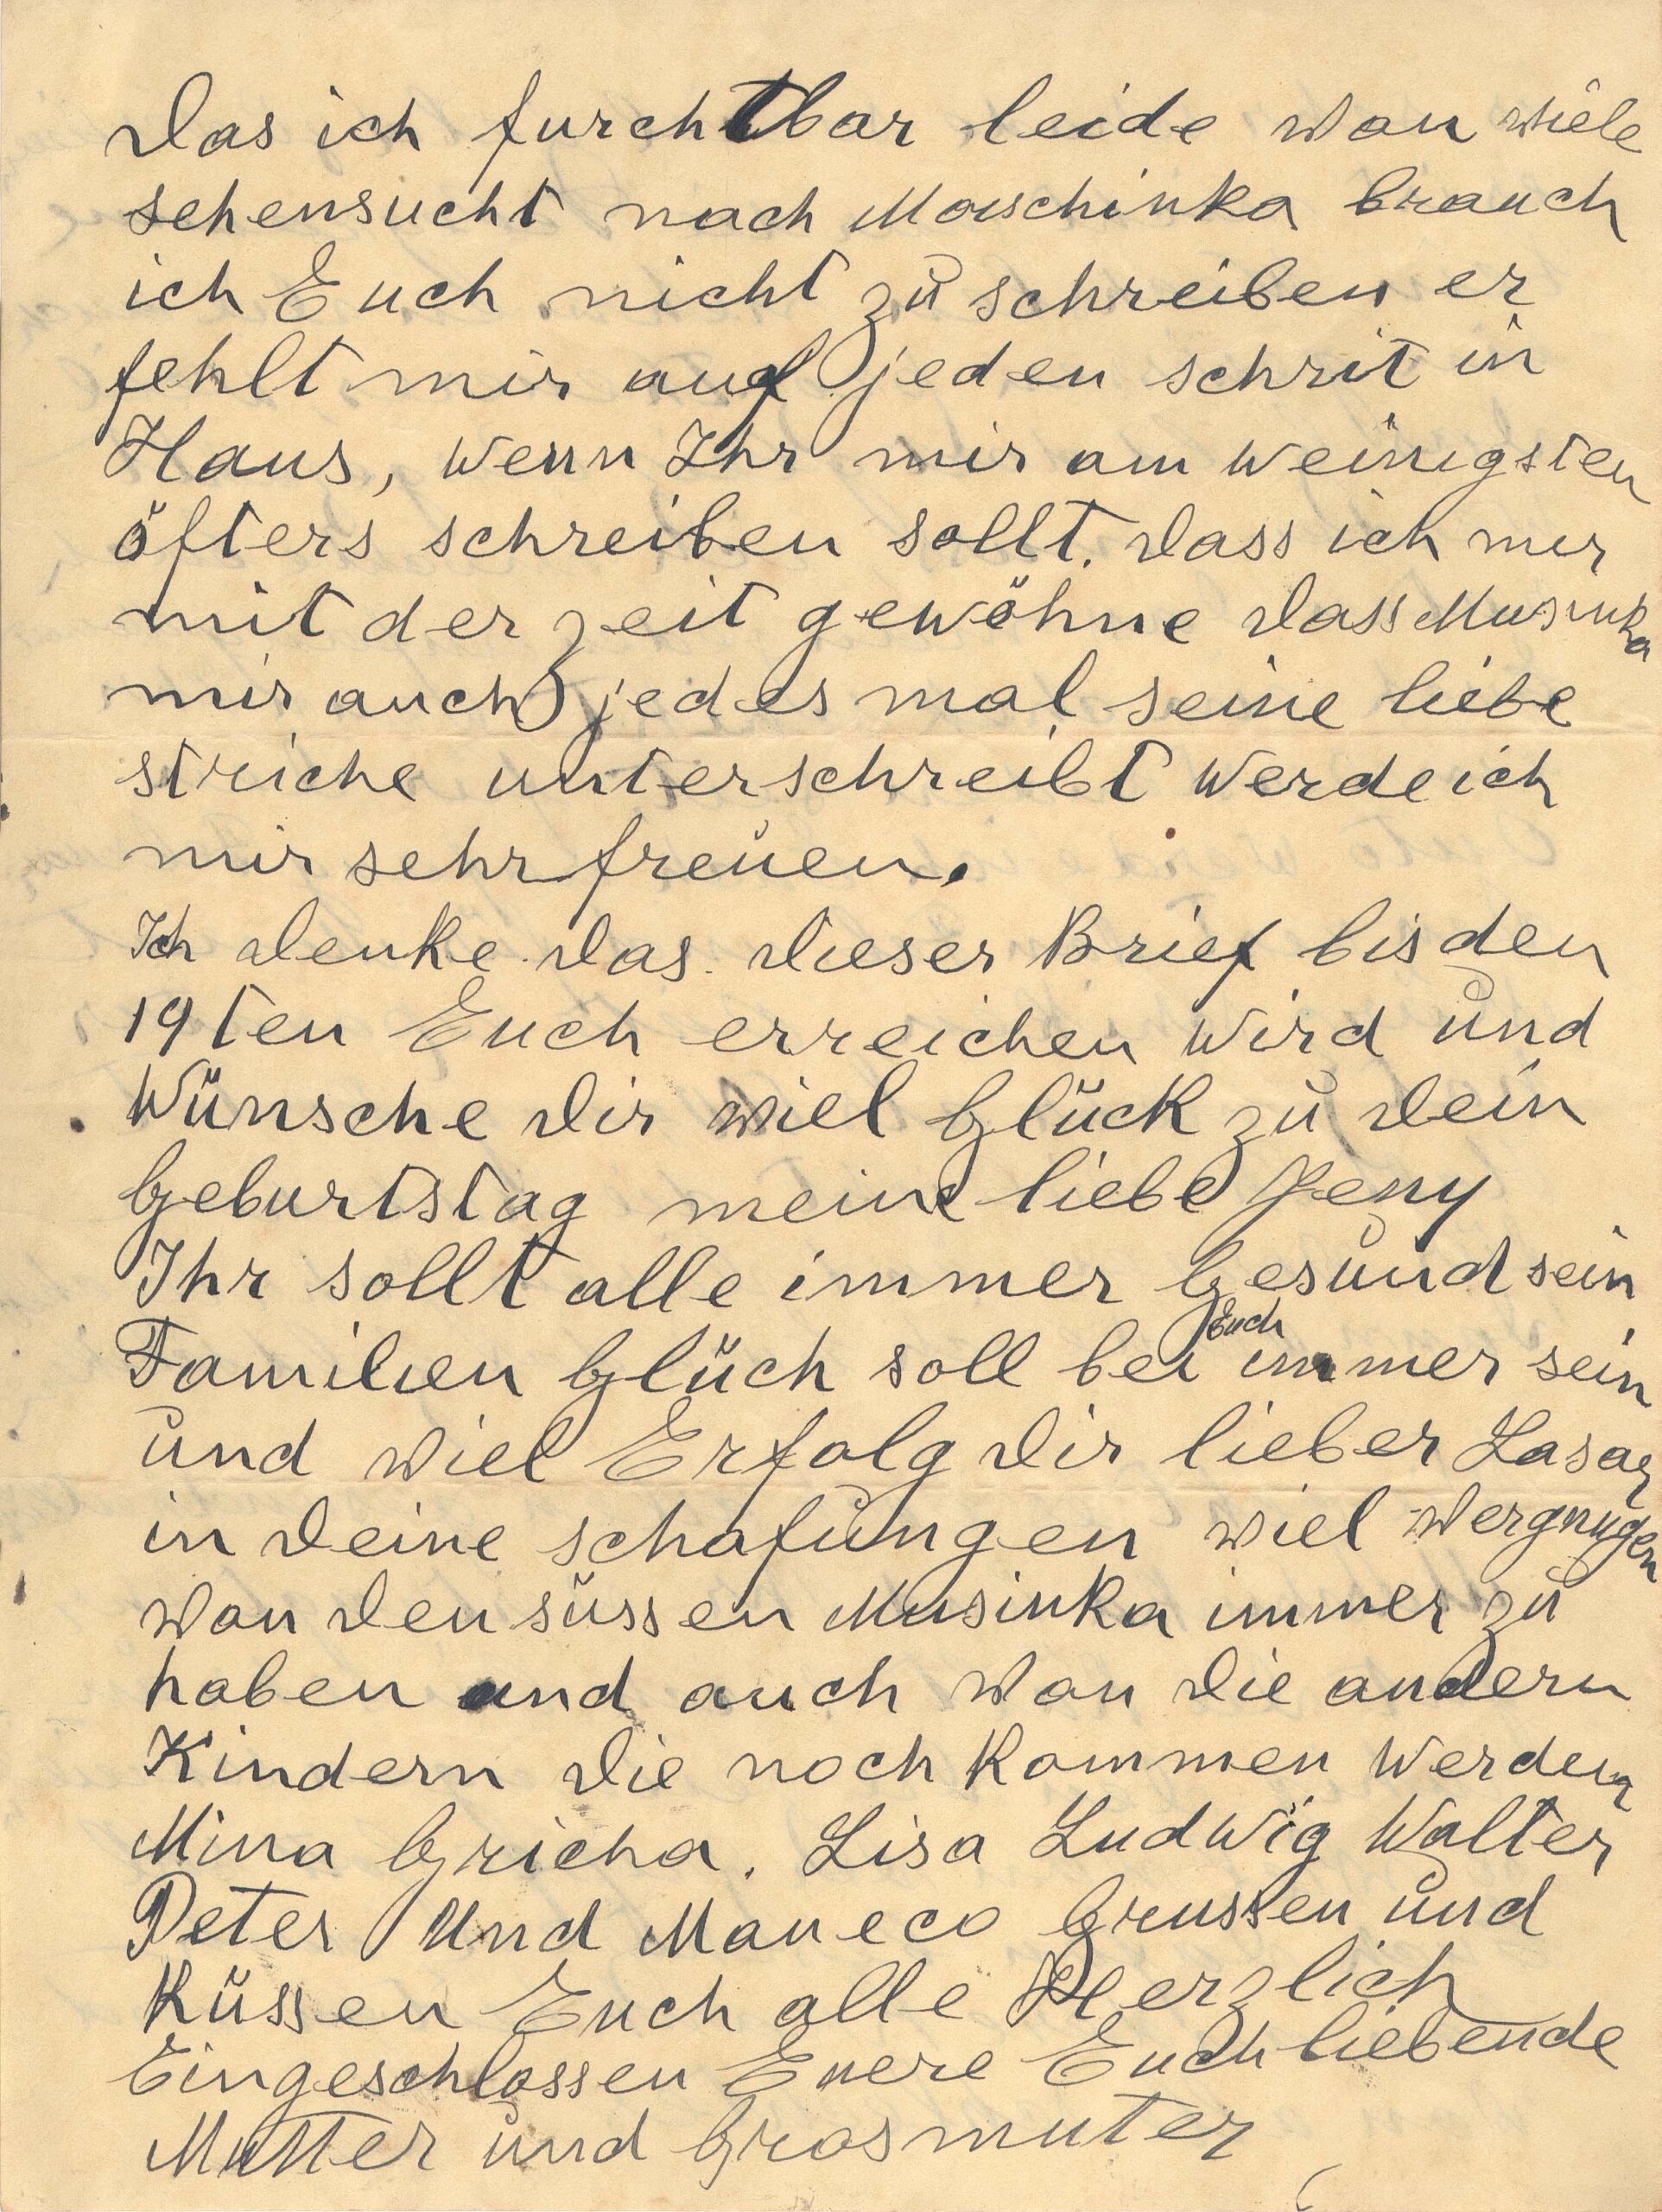 Das ich furchtbar leide won wiele
sehensucht nach Moischinka brauch
ich Euch nicht zu schreiben er
fehlt mir auf jeden schrit in
Haus, wenn Ihr mir am weinigsten
öfters schreiben sollt. dass ich mir
mit der zeit gewöhne dass Musinka
mir auch jedes mal seine liebe
striche unterschreibt werde ich
mir sehr freuen.
Ich denke das dieser Brief bis den
19ten Euch erreichen wird und
Wünsche dir wiel Glück zu dein
Geburtstag meine liebe Jeny
Ihr sollt alle immer Gesund sein
Familien Glüch soll bei Euch immer sein
und wiel Erfolg dir lieber Lasar
in deine schafungen wiel wergnugen
won den süssen Musinka immer zu
haben und auch won die andern
Kindern die noch kommen werden
Mina Gricha. Lisa Ludwig Walter
Peter Und Maneco Grussen und
Küssen Euch alle Herzlich
Eingeschlossen Euere Euch liebende
Mutter und Grosmuter